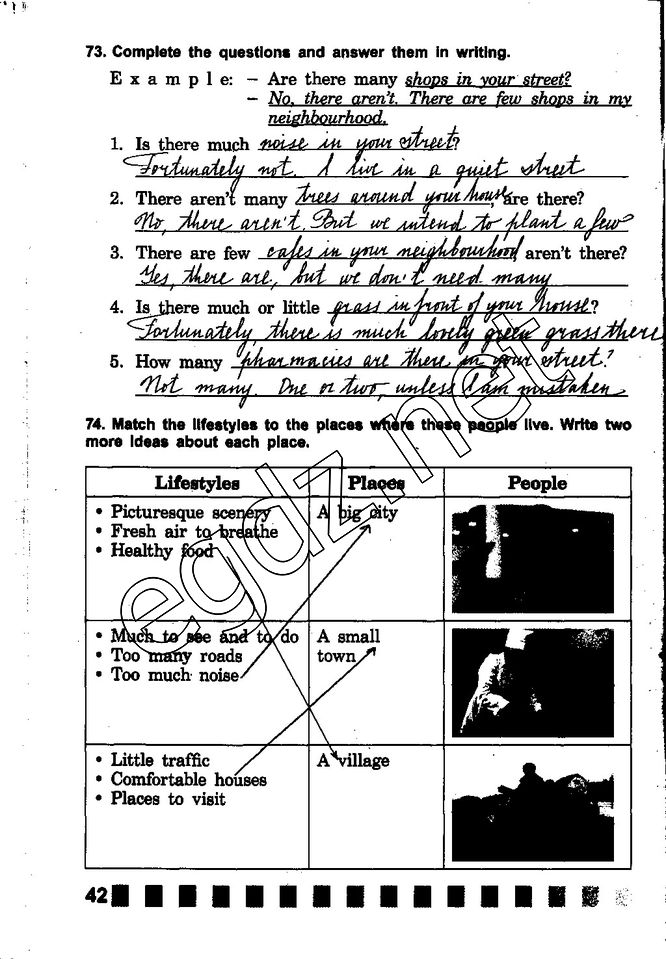 73. Complete the questions and answer them in writing.
E x a m p l e: – Are there many shops in your street?
– No, there aren't. There are few shops in my
neighbourhood.
1. Is there much noise in your street?
Fortunately not. I live in a quiet street
2. There aren't many trees around your house, are there?
No, there aren't. But we intend to plant a few
3. There are few cafes in your neighbourhood, aren't there?
Yes, there are, but we don't need many
4. Is there much or little grass in front of your house?
Fortunately, there is much lovely green grass there
5. How many pharmacies are there in your street?
Not many. One or two, unless I am mistaken
74. Match the lifestyles to the places where these people live. Write two
more ideas about each place.
Lifestyles Places People
• Picturesque scenery A big city
• Fresh air to breathe
• Healthy food
• Much to see and to do A small
• Too many roads town
• Too much noise
• Little traffic A village
• Comfortable houses
• Places to visit
42
egdz.net